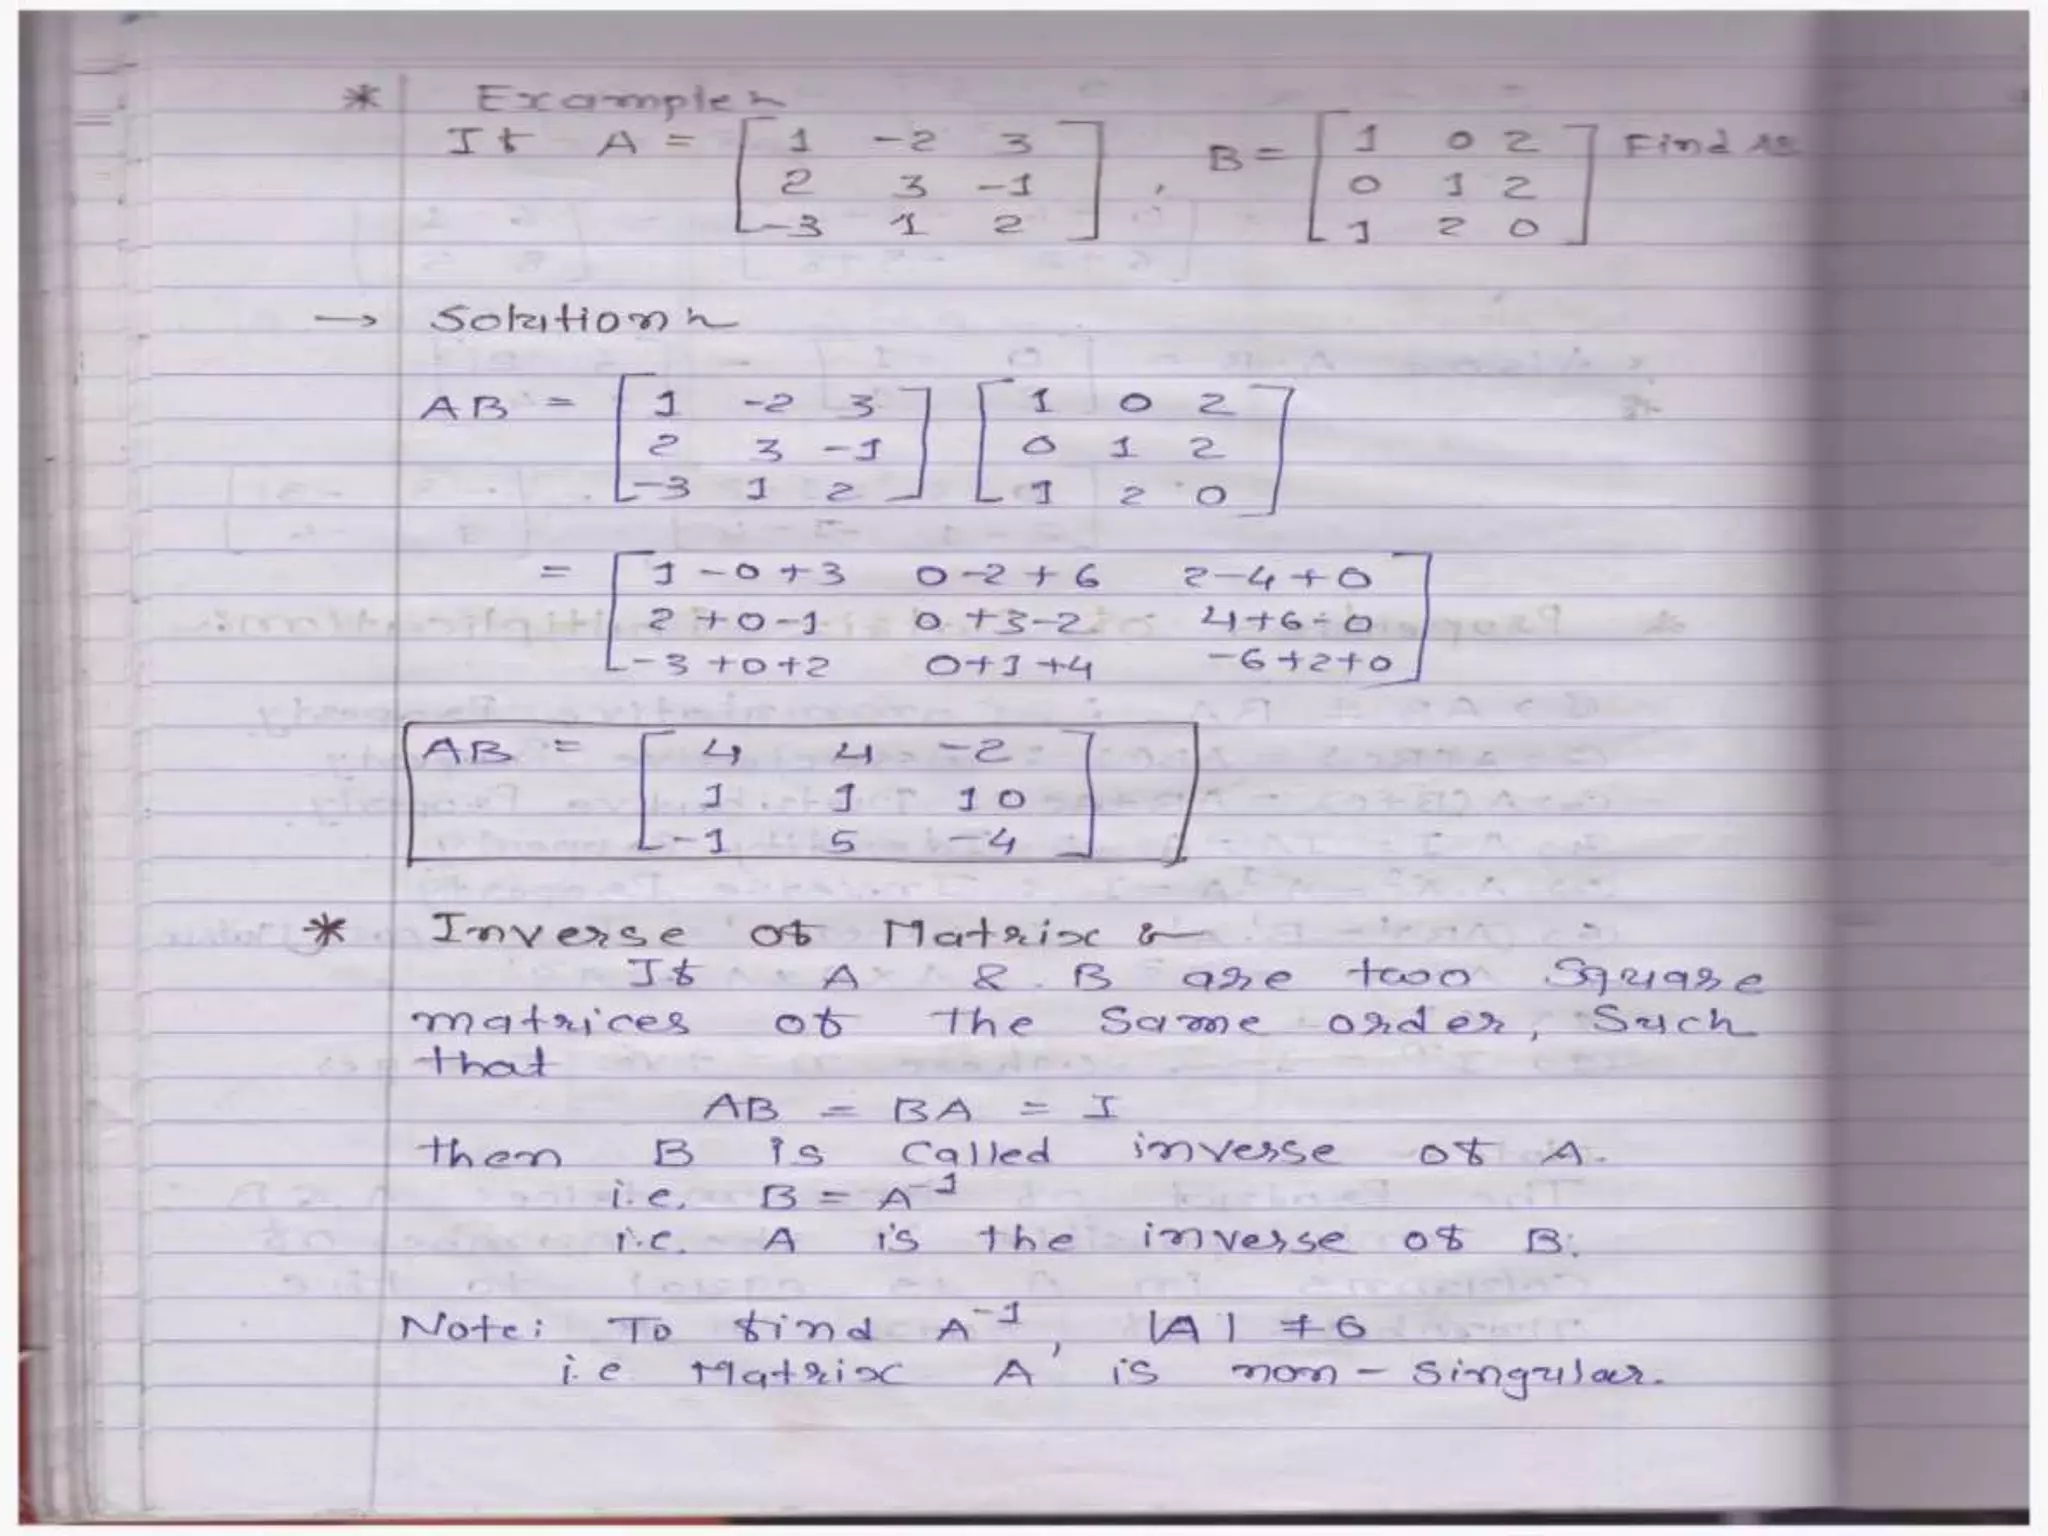 * Example:-
If A = [ 1 -2 3 , B = [ 1 0 2 ] Find
2 3 -1 0 1 2
-3 1 2 ] 1 2 0 ]
→ Solution:-
AB = [ 1 -2 3 ] [ 1 0 2 ]
2 3 -1 0 1 2
-3 1 2 1 2 0
= [ 1-0+3 0-2+6 2-4+0 ]
2+0-1 0+3-2 4+6-0
-3+0+2 0+1+4 -6+2+0
AB = [ 4 4 -2 ]
1 1 10
-1 5 -4
* Inverse of Matrix :-
If A & B are two square
matrices of the same order, such
that
AB = BA = I
then B is called inverse of A.
i.e. B = A⁻¹
i.e. A is the inverse of B.
Note: To find A⁻¹, |A| ≠ 0
i.e Matrix A is non-singular.